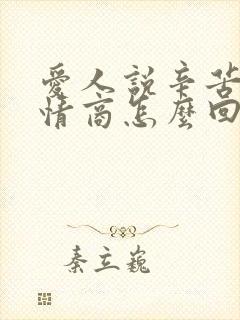 愛人説辛苦
情商怎麼回
秦立巍